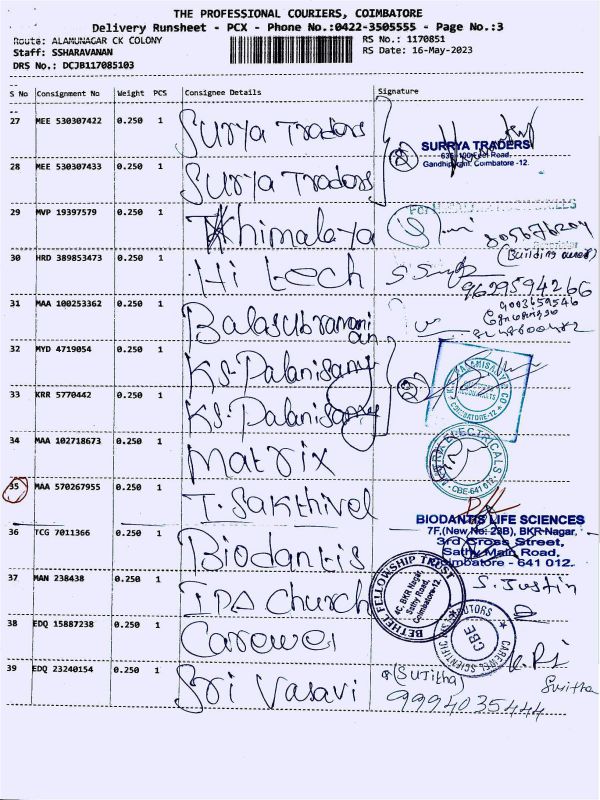 THE PROFESSIONAL COURIERS, COIMBATORE
Delivery Runsheet - PCX - Phone No.:0422-3505555 - Page No.:3
Route: ALAMUNAGAR CK COLONY RS No.: 1170851
Staff: SSHARAVANAN RS Date: 16-May-2023
DRS No.: DCJB117085103
S No Consignment No Weight PCS Consignee Details Signature
27 MEE 530307422 0.250 1 Surya Traders
SURRYA TRADERS
Coimbatore -12.
28 MEE 530307433 0.250 1 Surya Traders
29 MVP 19397579 0.250 1 Khimalaya
30 HRD 389853473 0.250 1 Hi tech
9629594266
31 MAA 100253362 0.250 1 Balasubramanian
32 MYD 4719054 0.250 1 KS. Palanisamy
33 KRR 5770442 0.250 1 KS. Palanisamy
COIMBATORE-12
34 MAA 102718673 0.250 1 Matrix
CBE-641 012.
35 MAA 570267955 0.250 1 T. Sakthivel
36 TCG 7011366 0.250 1 Biodantis
BIODANTIS LIFE SCIENCES
7F,(New No: 23B), BKR Nagar,
3rd Cross Street,
Sathy Main Road,
Coimbatore - 641 012.
37 MAN 238438 0.250 1 IPA Church
BETHEL FELLOWSHIP TRUST
4C, BKR Nagar
Sathy Road,
Coimbatore-12.
S. Justin
38 EDQ 15887238 0.250 1 Carewel
CBE
39 EDQ 23240154 0.250 1 Sri Vasavi
(Sujitha)
9994035444